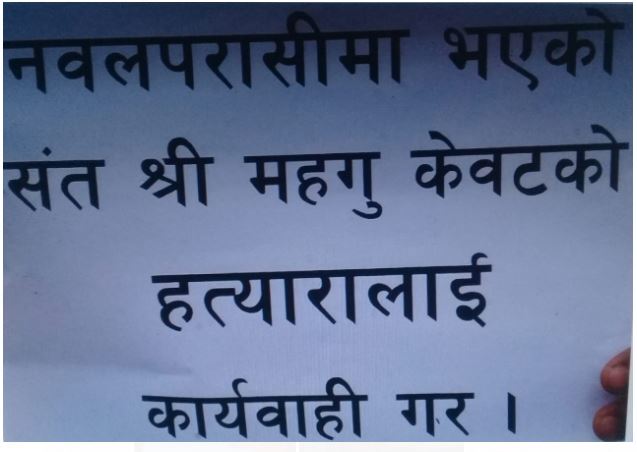 नवलपरासीमा भएको
संत श्री महगु केवटको
हत्यारालाई
कार्यवाही गर ।